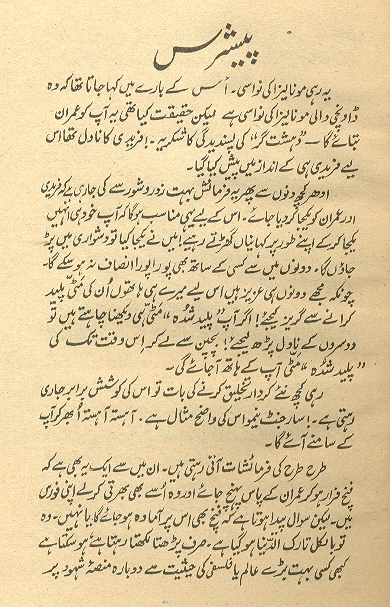 پیشرس
یہ رہی مونا لیزا کی نواسی۔ اس کے بارے میں کہا جاتا تھا کہ وہ
ڈاونچی والی مونا لیزا کی نواسی ہے لیکن حقیقت کیا تھی یہ آپ کو عمران
بتائے گا — "دہشت گر" کی پسندیدگی کا شکریہ۔ فریدی کا ناول تھا اس
لیے فریدی ہی کے انداز میں پیش کیا گیا۔
ادھر کچھ دنوں سے پھر یہ فرمائش بہت زور و شور سے کی جا رہی ہے کہ فریدی
اور عمران کو یکجا کر دیا جائے۔ اس کے لیے یہی مناسب ہوگا کہ آپ خود ہی انہیں
یکجا کر کے اپنے طور پر کہانیاں گھڑتے رہیئے! میں نے یکجا کیا تو دشواری میں پڑ
جاؤں گا۔ دونوں میں سے کسی کے ساتھ بھی پورا پورا انصاف نہ ہو سکے گا۔
چونکہ مجھے دونوں ہی عزیز ہیں اس لیے میرے ہی ہاتھوں اُن کی مٹی پلید
کرانے سے گریز کیجئے! اگر آپ "پلید شدہ" مٹی ہی دیکھنا چاہتے ہیں تو
دوسروں کے ناول پڑھ لیجئے! بچپن سے لے کر اس وقت تک کی
"پلید شدہ" مٹی آپ کے ہاتھ آ جائے گی۔
رہی کچھ نئے کردار تخلیق کرنے کی بات تو اس کی کوشش برابر جاری
رہتی ہے۔ سارجنٹ نیمو اس کی واضح مثال ہے۔ آہستہ آہستہ اُبھر کر آپ
کے سامنے آئے گا۔
طرح طرح کی فرمائشات آتی رہتی ہیں۔ ان میں سے ایک یہ بھی ہے کہ
فنچ فرار ہو کر عمران کے پاس پہنچ جائے اور وہ اُسے بھی بھرتی کر لے اپنی فورس
میں۔ لیکن سوال پیدا ہوتا ہے کہ فنچ بھی اس پر آمادہ ہو جائے گا یا نہیں۔ وہ
تو بالکل تارک الدنیا ہو گیا ہے۔ صرف پڑھتا لکھتا رہتا ہے، ہو سکتا ہے
کبھی کسی بہت بڑے عالم یا فلسفی کی حیثیت سے دوبارہ منصۂ شہود پر